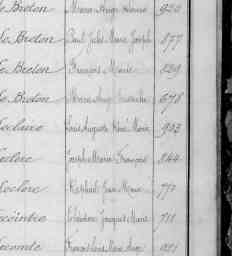 Le Breton Marie Ange 920
Le Breton Paul Jules Marie Joseph 877
Le Breton François Marie 829
Le Breton Marie Ange 678
Leclaire Louis Auguste Marie 903
Leclerc Joseph Marie François 844
Leclerc Raphaël Jean Marie 777
Lecointre Théodore Jacques Marie 711
Lecomte François Louis Marie